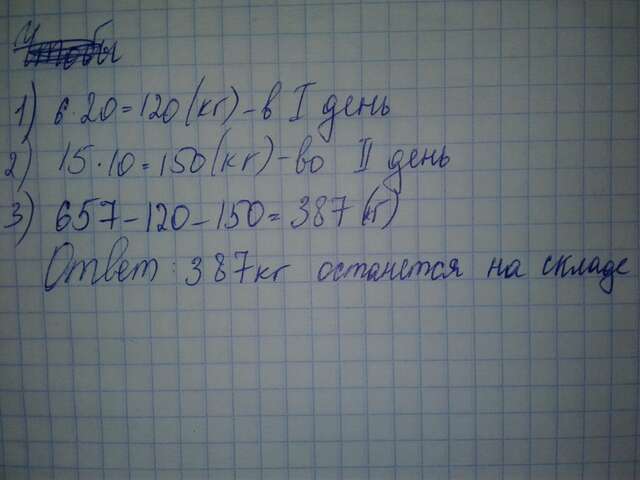 Чтобы
1) 6·20=120(кг)-в I день
2) 15·10=150(кг)-во II день
3) 657-120-150=387(кг)
Ответ: 387кг останется на складе